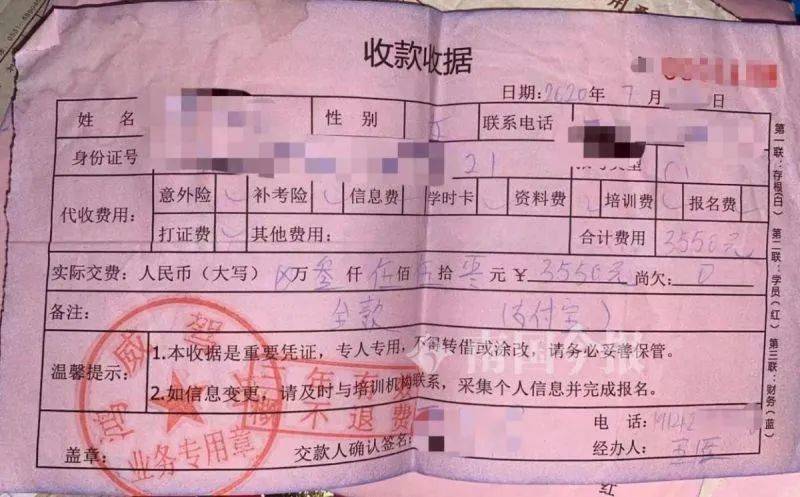 收款收据
日期:2020年7月 日
姓名 性别 联系电话
身份证号 21
代收费用: 意外险 补考险 信息费 学时卡 资料费 培训费 报名费
打证费 其他费用: 合计费用 3550元
实际交费:人民币(大写) 万叁仟伍佰伍拾零元¥3550元 尚欠:0
备注: 全款 (支付宝)
温馨提示:
1.本收据是重要凭证,专人专用,不得转借或涂改,请务必妥善保管。
2.如信息变更,请及时与培训机构联系,采集个人信息并完成报名。
盖章: 交款人确认签名: 电话:
经办人:
第一联:存根(白) 第二联:学员(红) 第三联:财务(蓝)
鸿威驾
业务专用章
不退费
南国今报